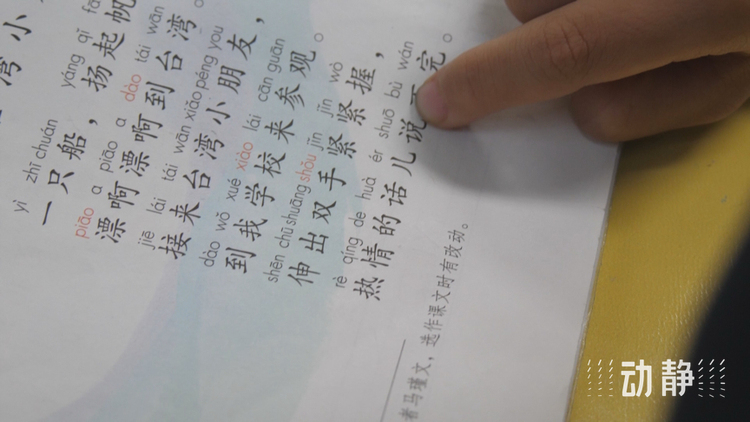 湾小
yì zhī chuán yáng qǐ
一只船，扬起帆
piāo a piāo a dào tái wān
漂啊漂啊到台湾。
jiē lái tái wān xiǎo péng you
接来台湾小朋友，
dào wǒ xué xiào lái cān guān
到我学校来参观。
shēn chū shuāng shǒu jǐn jǐn wò
伸出双手紧紧握，
rè qíng de huà ér shuō bù wán
热情的话儿说不完。
者马瑾文，选作课文时有改动。
动静